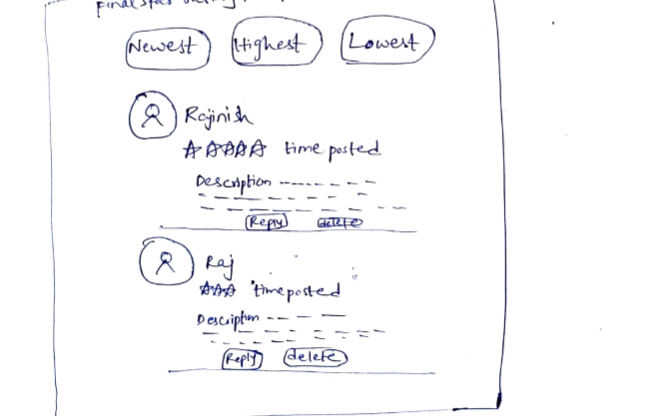 Newest Highest Lowest
Rajinish
time posted
Description
Reply delete
Raj
time posted
Description
Reply delete